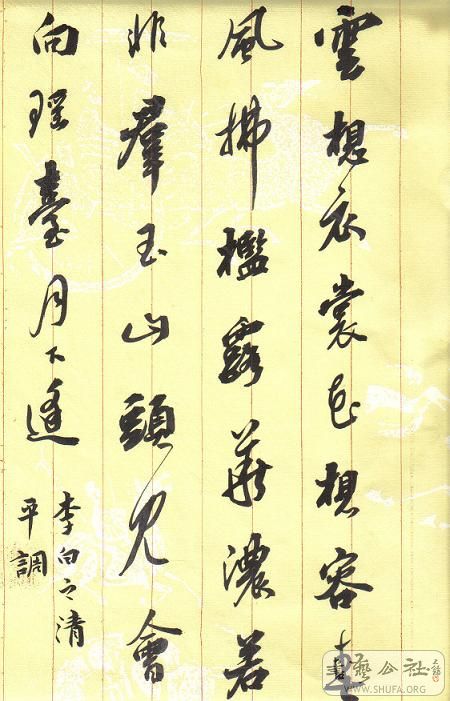 雲想衣裳花想容春
風拂檻露華濃若
非羣玉山頭見會
向瑶臺月下逢
李白之清
平調
藝公社
WWW.SHUFA.ORG